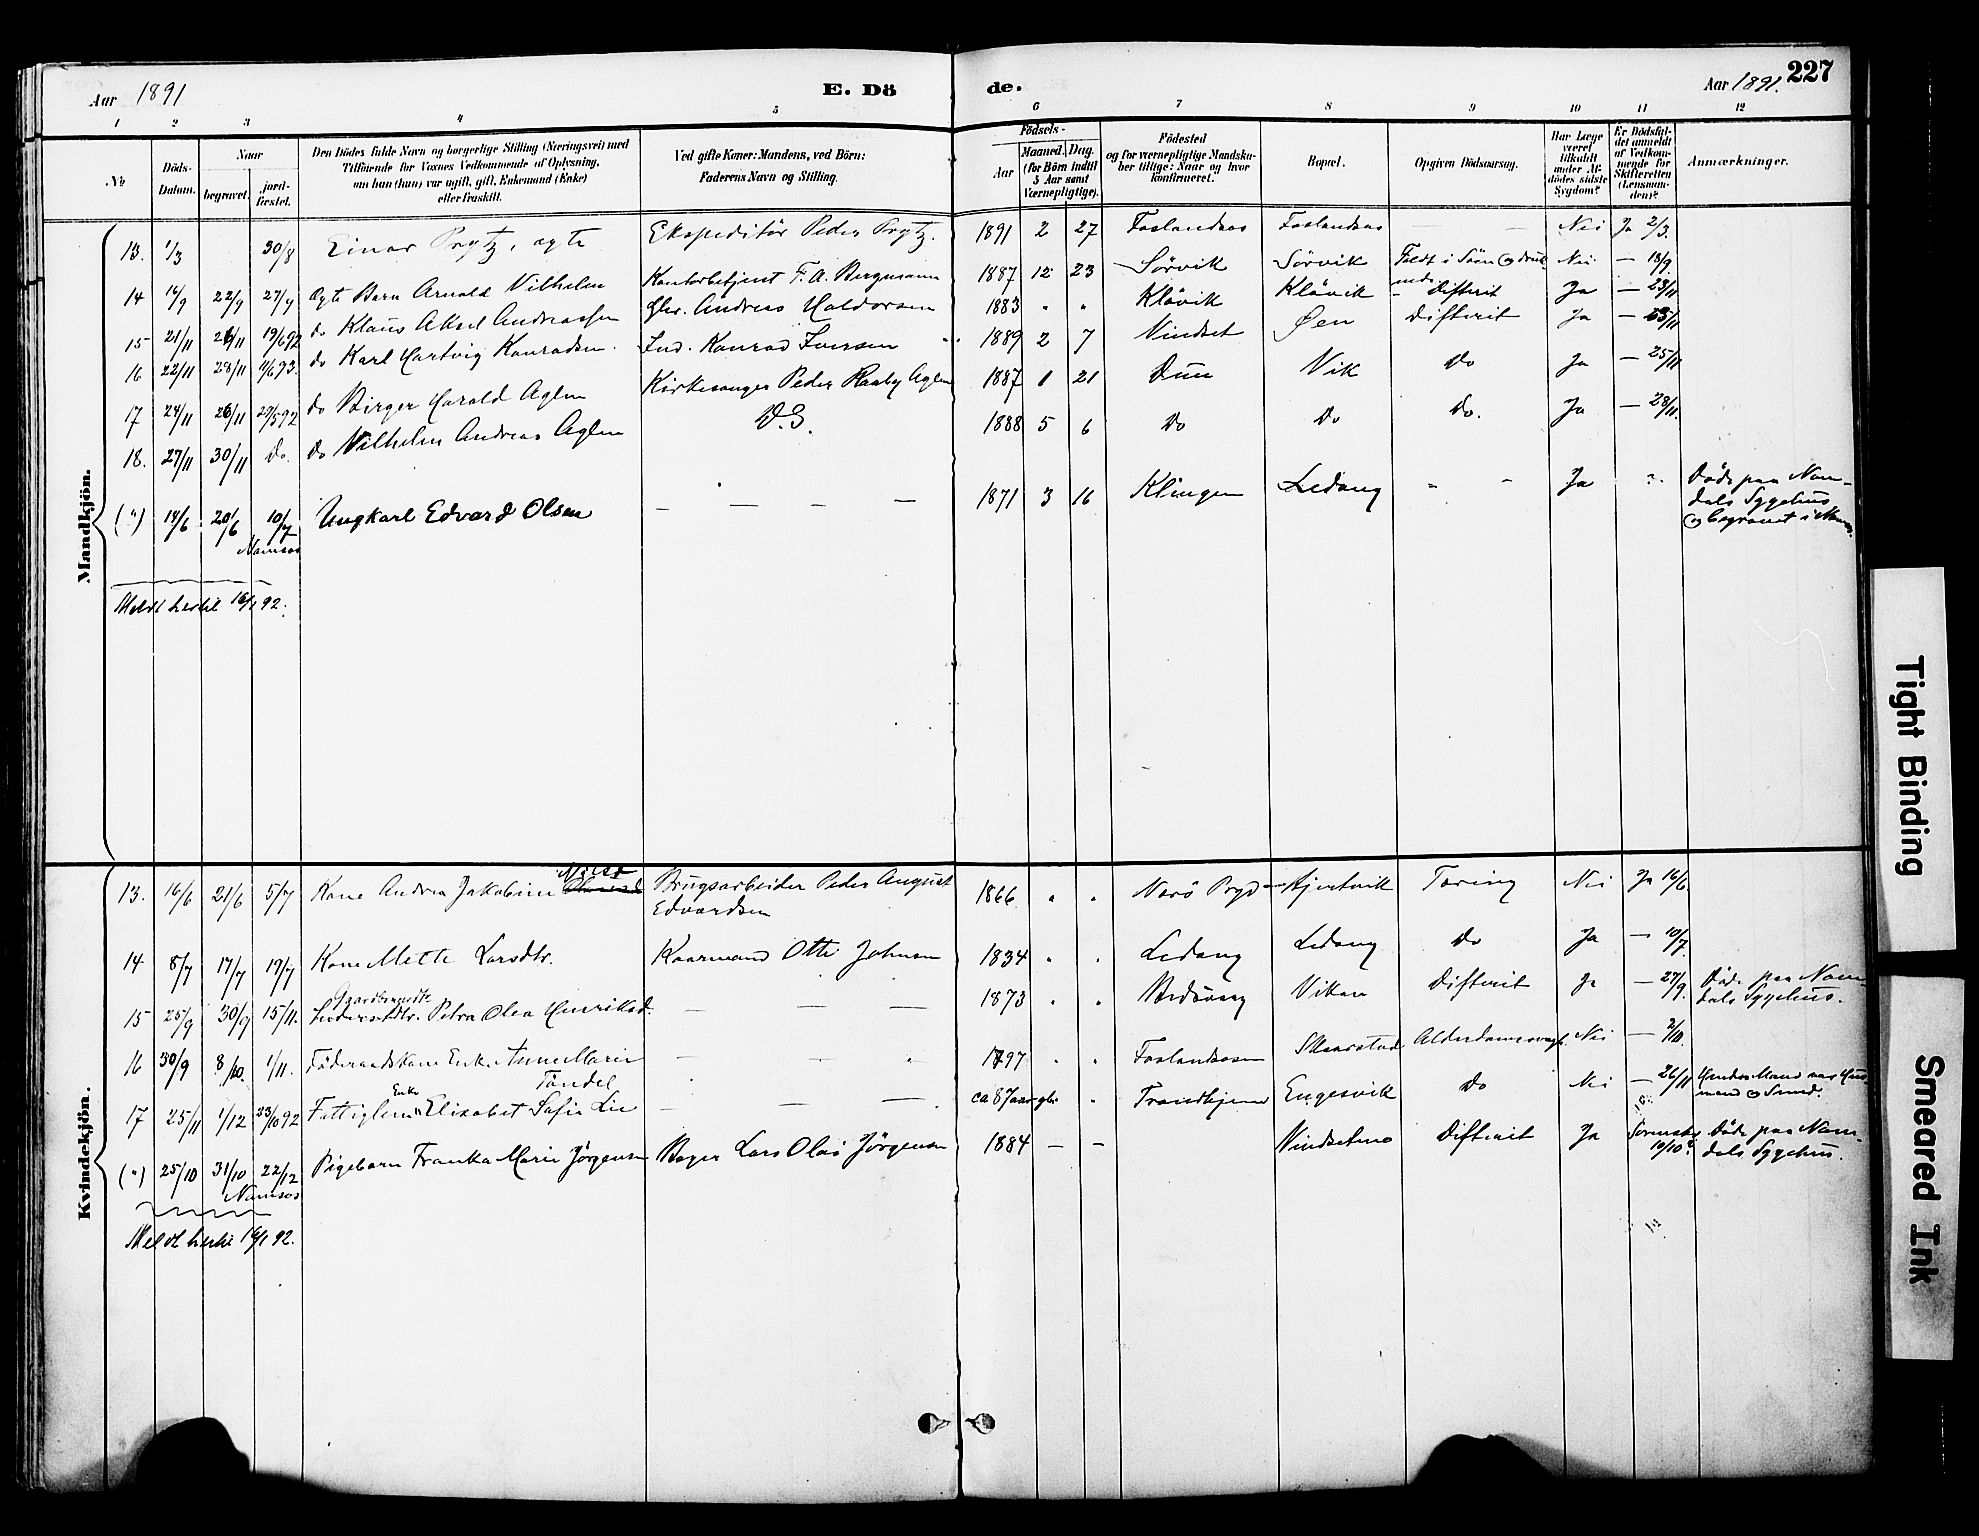 Aar 1891
E. Dö de.
Aar 1891.
227
1 2 3 4 5 6 7 8 9 10 11 12
No
Döds-Datum.
Naar
begravet.
jord-fæstet.
Den Dödes fulde Navn og borgerlige Stilling (Næringsvei) med
Tilföiende for Voxnes Vedkommende af Oplysning,
om han (hun) var ugift, gift, Enkemand (Enke)
eller fraskilt.
Ved gifte Koner: Mandens, ved Börn:
Faderens Navn og Stilling.
Födsels-
Aar
Maaned. Dag.
(for Börn indtil
5 Aar samt
Værnepligtige).
Födested
og for værnepligtige Mandska-
ber tillige: Naar og hvor
konfirmeret.
Bopæl.
Opgiven Dödsaarsag.
Har Læge
været
tilkaldt
under Af-
dödes sidste
Sygdom?
Er Dödsfal-
det anmeldt
af Vedkom-
mende for
Skifteretten
(Lensman-
den)?
Anmærkninger.
Mandkjön.
13. 1/3 30/8 Einar Prytz, ægte Ekspeditör Peder Prytz. 1891 2 27 Foslandsos Foslandsos — — Nei Ja 2/3.
14 16/9 22/9 27/9 Ægte Barn Arnold Vilhelm Kontorbetjent F. A. Bergmann 1887 12 23 Sörvik Sörvik Faldt i Söen og druk-nede Nei — 18/9.
15 21/11 26/11 19/6 92 do Klaus Aksel Andreassen Gbr. Andreas Haldorsen 1883 " " Klövik Klövik Difterit Ja — 23/11
16 22/11 28/11 11/6 93. do Karl Hartvig Konradsen. Ind. Konrad Iversen 1889 2 7 Vindset Öen Difterit Ja — 23/11
17 24/11 26/11 29/5 92 do Birger Harald Aglen Kirkesanger Peder Aglen 1887 1 21 Dun Vik Do Ja — 25/11
18. 27/11 30/11 Do. do Vilhelm Andreas Aglen D. S. 1888 5 6 Do Do Do. Ja — 28/11.
(") 14/6 20/6 10/7 Ungkarl Edvard Olsen — — — — 1871 3 16 Klingen Ledang " " Ja " Döde paa Nam-
Namsos
dals Sygehus
og begravet i
Meldt hertil 16/1 92.
Kvindekjön.
13. 16/6 21/6 5/7 Kone Andrea Jakobine Brugsarbeider Peder August
Edvardsen 1866 " " Nærö Prgd Hjertvik Tæring Nei Ja 16/6
14 8/7 17/7 19/7 Kone Mette Larsdtr. Kaarmand Otte Johnsen 1834 " " Ledang Ledang Do Ja — 10/7
Gaardbruger
15 25/9 30/9 15/11. Petra Olea Henriksd. — — — 1873 " " Vikan Difterit Ja — 27/9. Döde paa Nam-
dals Sygehus.
16 30/9 8/10. 1/11. Föderaadskone Enke Anne Marie — — " 1797 " " Foslandsosen Skaarstad Alderdomssvagh. Nei — 2/10.
Töndel
17 25/11 1/12 23/10 92 Fattiglem Enke Elisabet Sofie Lie — — — ca 87 aar gl. " Trondhjem Engesvik Do Nei — 26/11 Hendes Mand var Hus-
mand og Smed.
(") 25/10 31/10 22/12 Pigebarn Franka Marie Jörgensen Bager Lars Olai Jörgensen 1884 — — Vindsetmo Difterit Ja 10/10? Döde paa Nam-
Namsos
dals Sygehus.
Meldt hertil 16/1 92.
Tight Binding
Smeared Ink